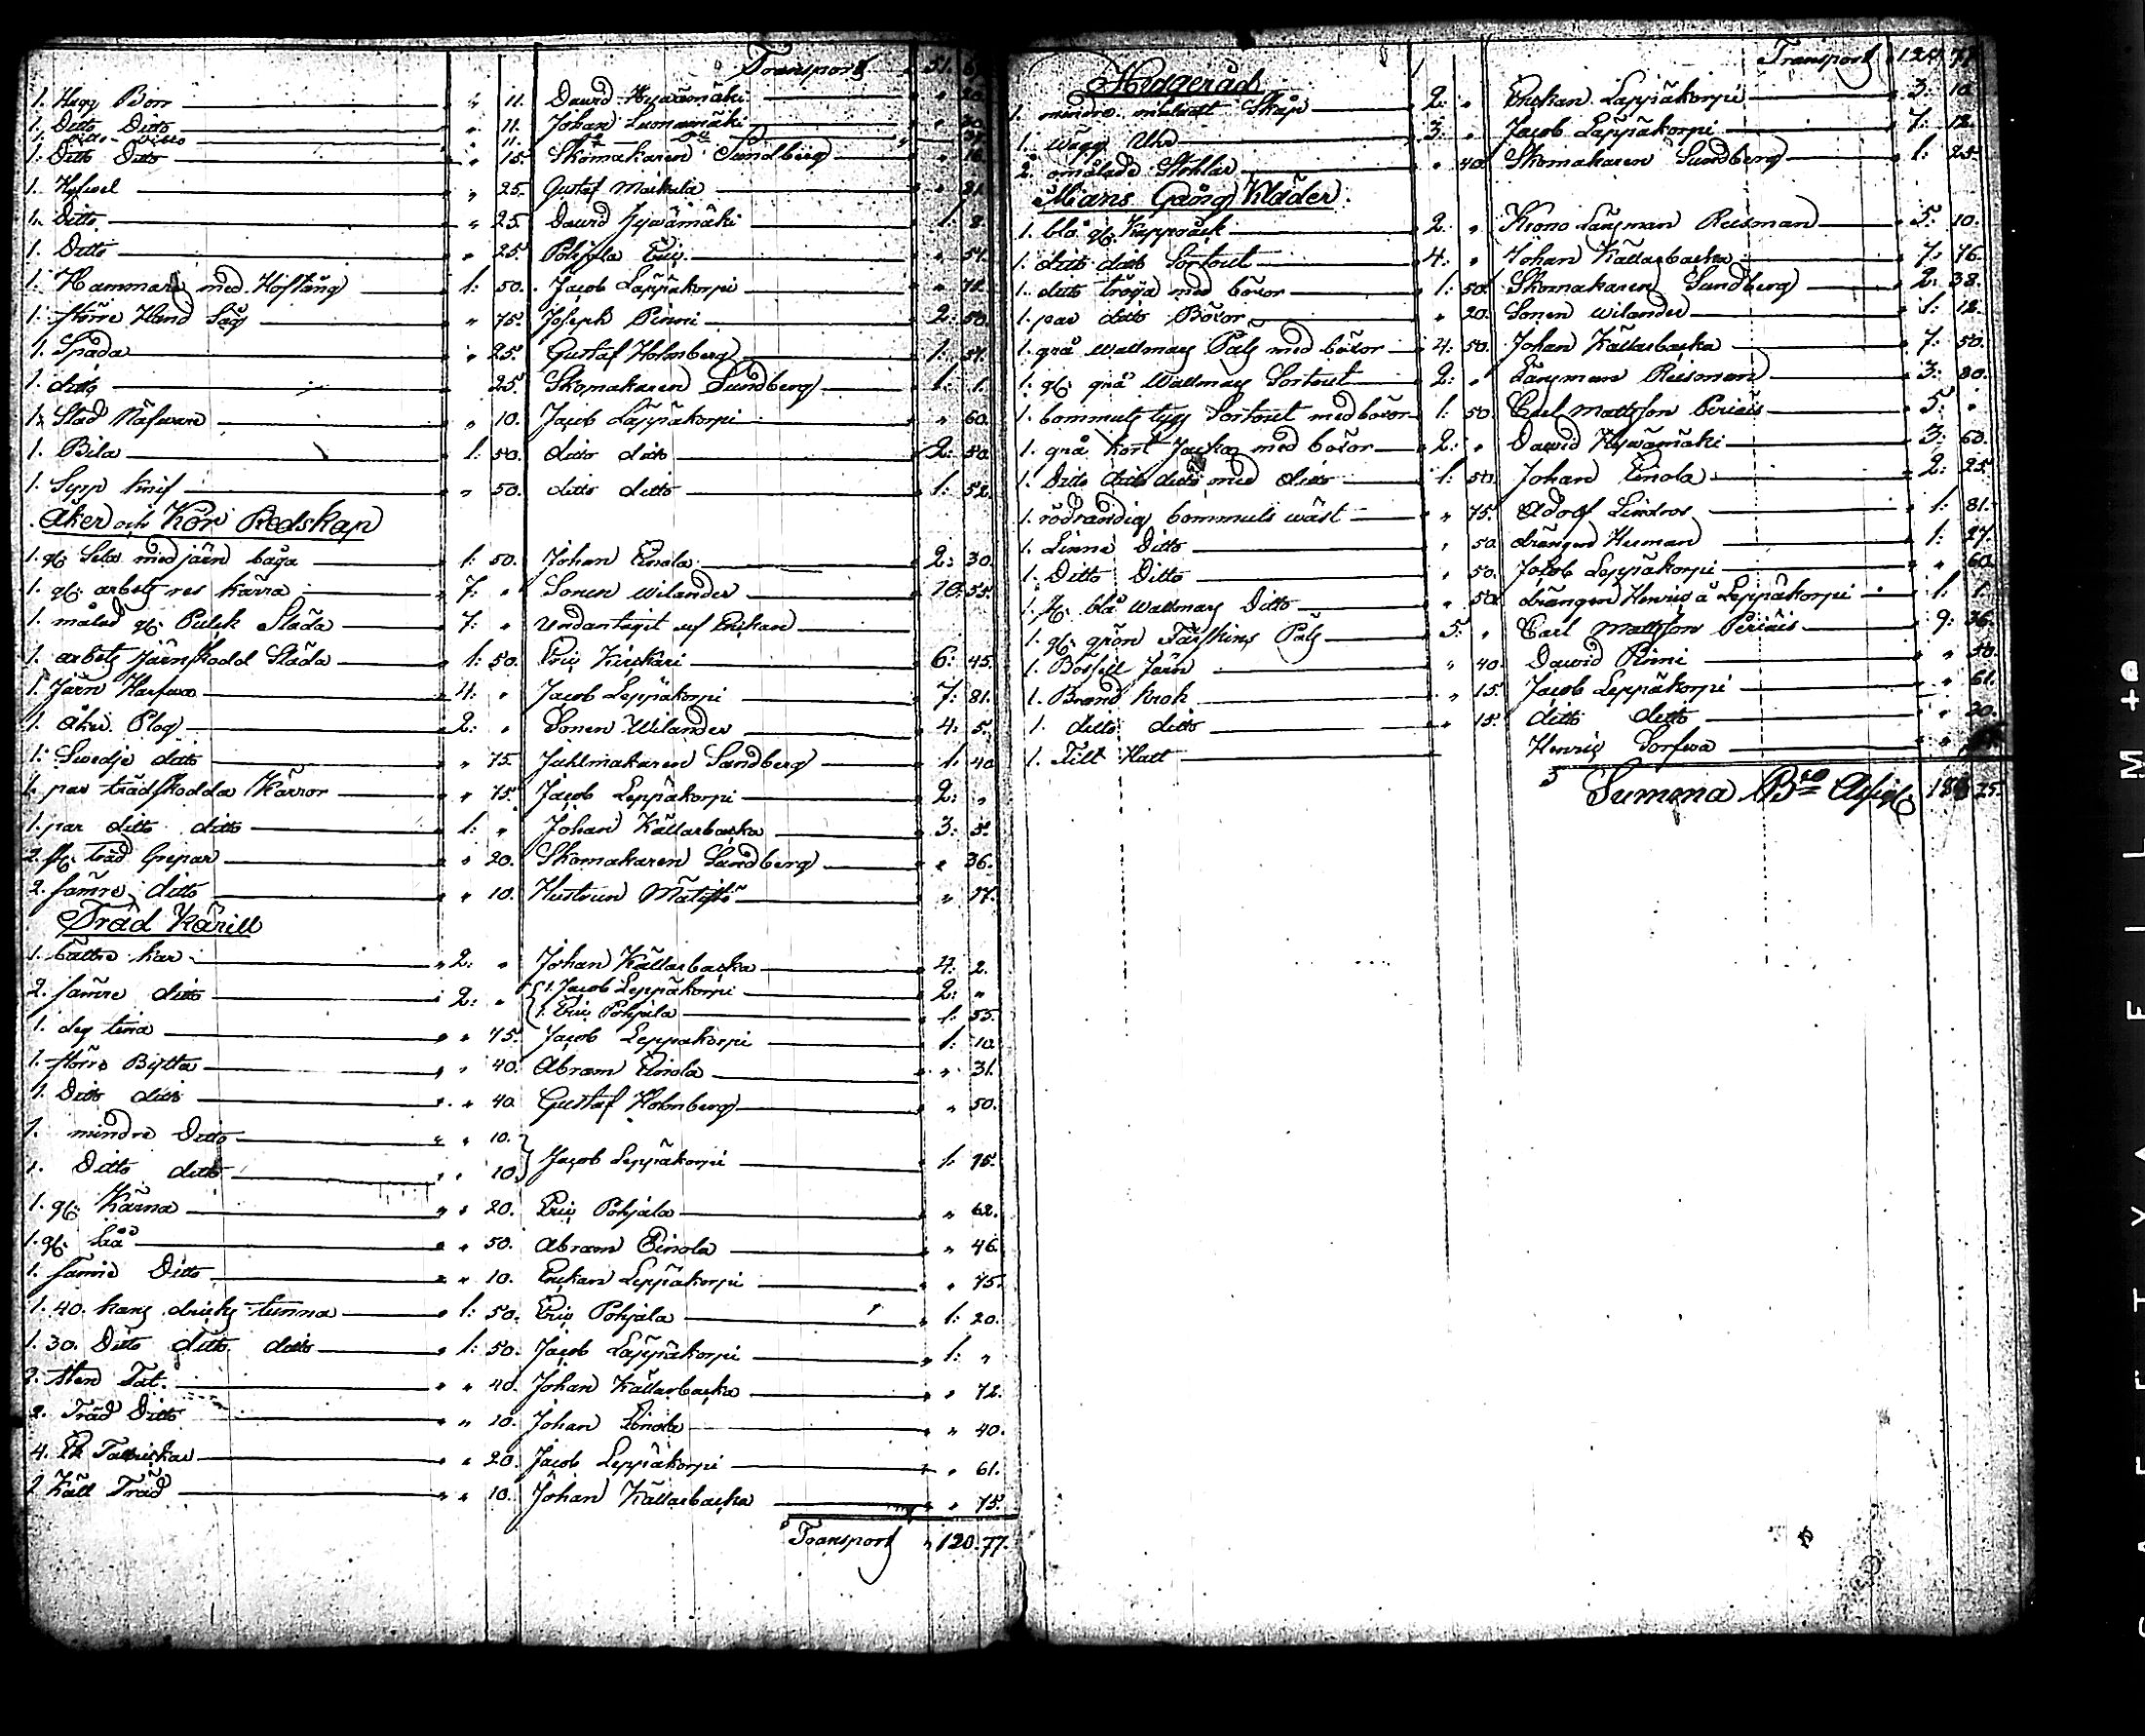 Transport 51. 6.
1. Hugg Borr " 11. David Hywämäki "
1. Ditto Ditto " 11. Johan Luomamäki " 30.
1. Ditto Ditto " 11. Do Do "
1. Ditto Ditto " 15. Skomakaren Sundberg " 16.
1. Hyfwel " 25. Gustaf Markula " 31.
1. Ditto " 25. David Hywämäki 1: 8.
1. Ditto " 25. Pohjala Eric " 54.
1. Hammare med Hoftång 1: 50. Jacob Läppäkorpi " 72.
1. större Hand Såg " 75. Joseph Pinni 2: 50.
1. Spada " 25. Gustaf Holmberg 1: 54.
1. ditto " 25. Skomakaren Sundberg 1: 1.
1. Stad Näfware " 10. Jacob Läppäkorpi " 60.
1. Bila 1: 50. ditto ditto 2: 50.
1. Sepp Knif " 50. ditto ditto 1: 52.
Åker och Kör Redskap
1. gl: Sela med järn båga 1: 50. Johan Einola 2: 30.
1. gl: arbets res kärra 7: " Sonen Wilander 10: 55.
1. målad gl: Pulck Släda 7: " Undantagit af Enckan
1. arbets Järnskodd Släda 1: 50. Eric Kieskari 6: 45.
1. Järn Harfwa 4: " Jacob Leppäkorpi 7: 81.
1. åker Plog 2: " Sonen Wilander 4: 5.
1. Swedje ditto " 75. Juhlmakaren Sandberg 1: 40
1. par trädskodda Kärror " 75. Jacob Leppäkorpi 2: "
1. par ditto ditto 1: " Johan Källarbacka 3: 5.
2. st: träd Grepar " 20. Skomakaren Sundberg " 36.
2. sämre ditto " 10. Hustrun Mätästö " 17.
Träd Kärill
1. bättre kar 2: " Johan Källarbacka 4. 2.
2. sämre ditto 2: " 1. Jacob Leppäkorpi 2: "
1. Eric Pohjala 1: 55.
1. deg tina " 75. Jacob Leppäkorpi 1: 10
1. större Bytta " 40. Abram Einola " 31.
1. Ditto ditto " 40 Gustaf Holmberg " 50.
1. mindre Ditto " 10.
1. Ditto ditto " 10. Jacob Leppäkorpi 1: 75.
1. gl: Kärna " 20. Eric Pohjala " 62.
1. gl: Såå " 50. Abram Einola " 46.
1. sämre Ditto " 10. Enckan Leppäkorpi " 75.
1. 40. kans dricks tunna 1: 50. Eric Pohjala 1: 20.
1. 30. Ditto ditto ditto 1: 50. Jacob Läppäkorpi 1: "
2. Sten Fat. " 40. Johan Källarbacka " 72.
2. Träd Ditto " 10. Johan Einola " 40.
4. Tallrickar " 20. Jacob Leppäkorpi " 61.
1 Käll Träd " 10. Johan Källarbacka " 75.
Transport " 120. 77.
Transport 120. 77.
Husgeråd
1. mindre målat Skåp 2: " Enckan Lappäkorpi 3: 10
1. wägg Uhr 3: " Jacob Läppäkorpi 7: 12.
2. omålade Stohlar " 40. Skomakaren Sundberg 1: 25.
Mans Gång Kläder.
1. blå gl: Kappråck 2: " Krono Länsman Reisman 5. 10.
1. ditto ditto Sortout 4: " Johan Källarbacka 7: 76.
1. ditto tröja med böxor 1: 50. Skomakaren Sundberg 2: 38.
1. par ditto Böxor " 20. Sonen Wilander 1: 12.
1. grå Wallmars Päls med böxor 4: 50. Johan Källarbacka 7: 50.
1. gl: grå Wallmars Sortout 2: " Länsman Reisman 3: 80.
1. bommuls tygs Sortout med böxor 1: 50. Carl Mattsson Periäis 5: "
1. grå kort Jacka med böxor 2: " David Hywämäki 3: 60.
1. Ditto ditto ditto med ditto 1: 50. Johan Einola 2: 25.
1. rödrandig bommuls wäst " 75. Adolf Lindros 1: 81.
1. Linne Ditto " 50. drängen Herman 1: 27.
1. Ditto Ditto " 50. Jacob Leppäkorpi " 60.
1. gl: blå Wallmars Ditto " 50. drängen Henric å Leppäkorpi 1: 1.
1. gl: grön Fårskins Päls 5: " Carl Mattsson Periäis 9: 36.
1. Järn " 40. David Pinni " 50.
1. Brand krok " 15. Jacob Leppäkorpi " 61.
1. ditto ditto " 15. ditto ditto " 20.
1. Filt Hatt Henric Sorfwa "
Summa Bco 25.